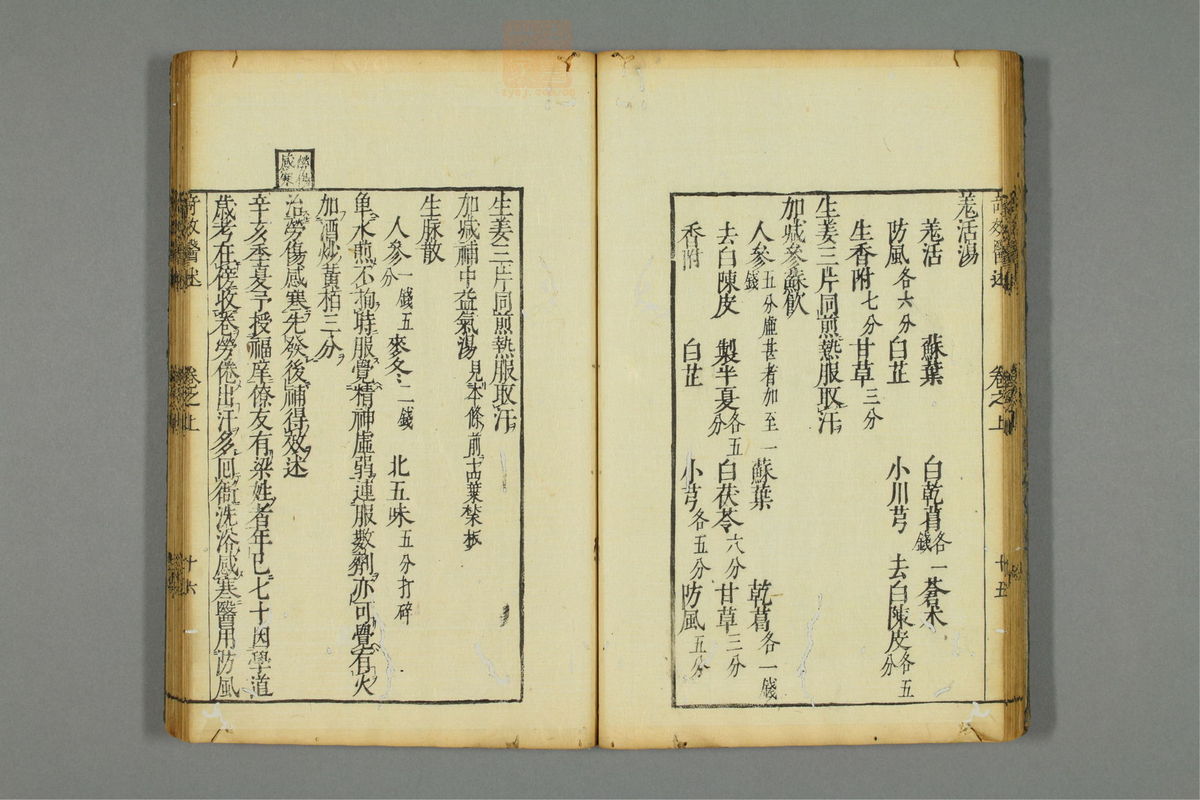 奇效醫述 卷之上 十五
羗活湯
羗活 蘇葉 白乾葛各一錢 蒼术
防風各六分 白芷 小川芎 去白陳皮各五分
生香附七分 甘草三分
生姜三片同煎熱服取汗
加减參蘇飲
人參五分虛甚者加至一錢 蘇葉 乾葛各一錢
去白陳皮 製半夏各五分 白茯苓六分 甘草三分
香附 白芷 小芎各五分 防風五分
生姜三片同煎熱服取汗
加减補中益氣湯見本條前
生脉散
人參一錢五分 麥冬二錢 北五味五分打碎
單水煎不拘時服覺精神虛弱連服數劑亦可覺有火
加酒炒黃栢三分
治勞傷感寒先發後補得效述
辛亥季夏予授福庠僚友有梁姓者年已七十因學道
歲考在徬收卷勞倦出汗多回衙洗浴感寒醫用防風
奇效醫述 卷之上 十六